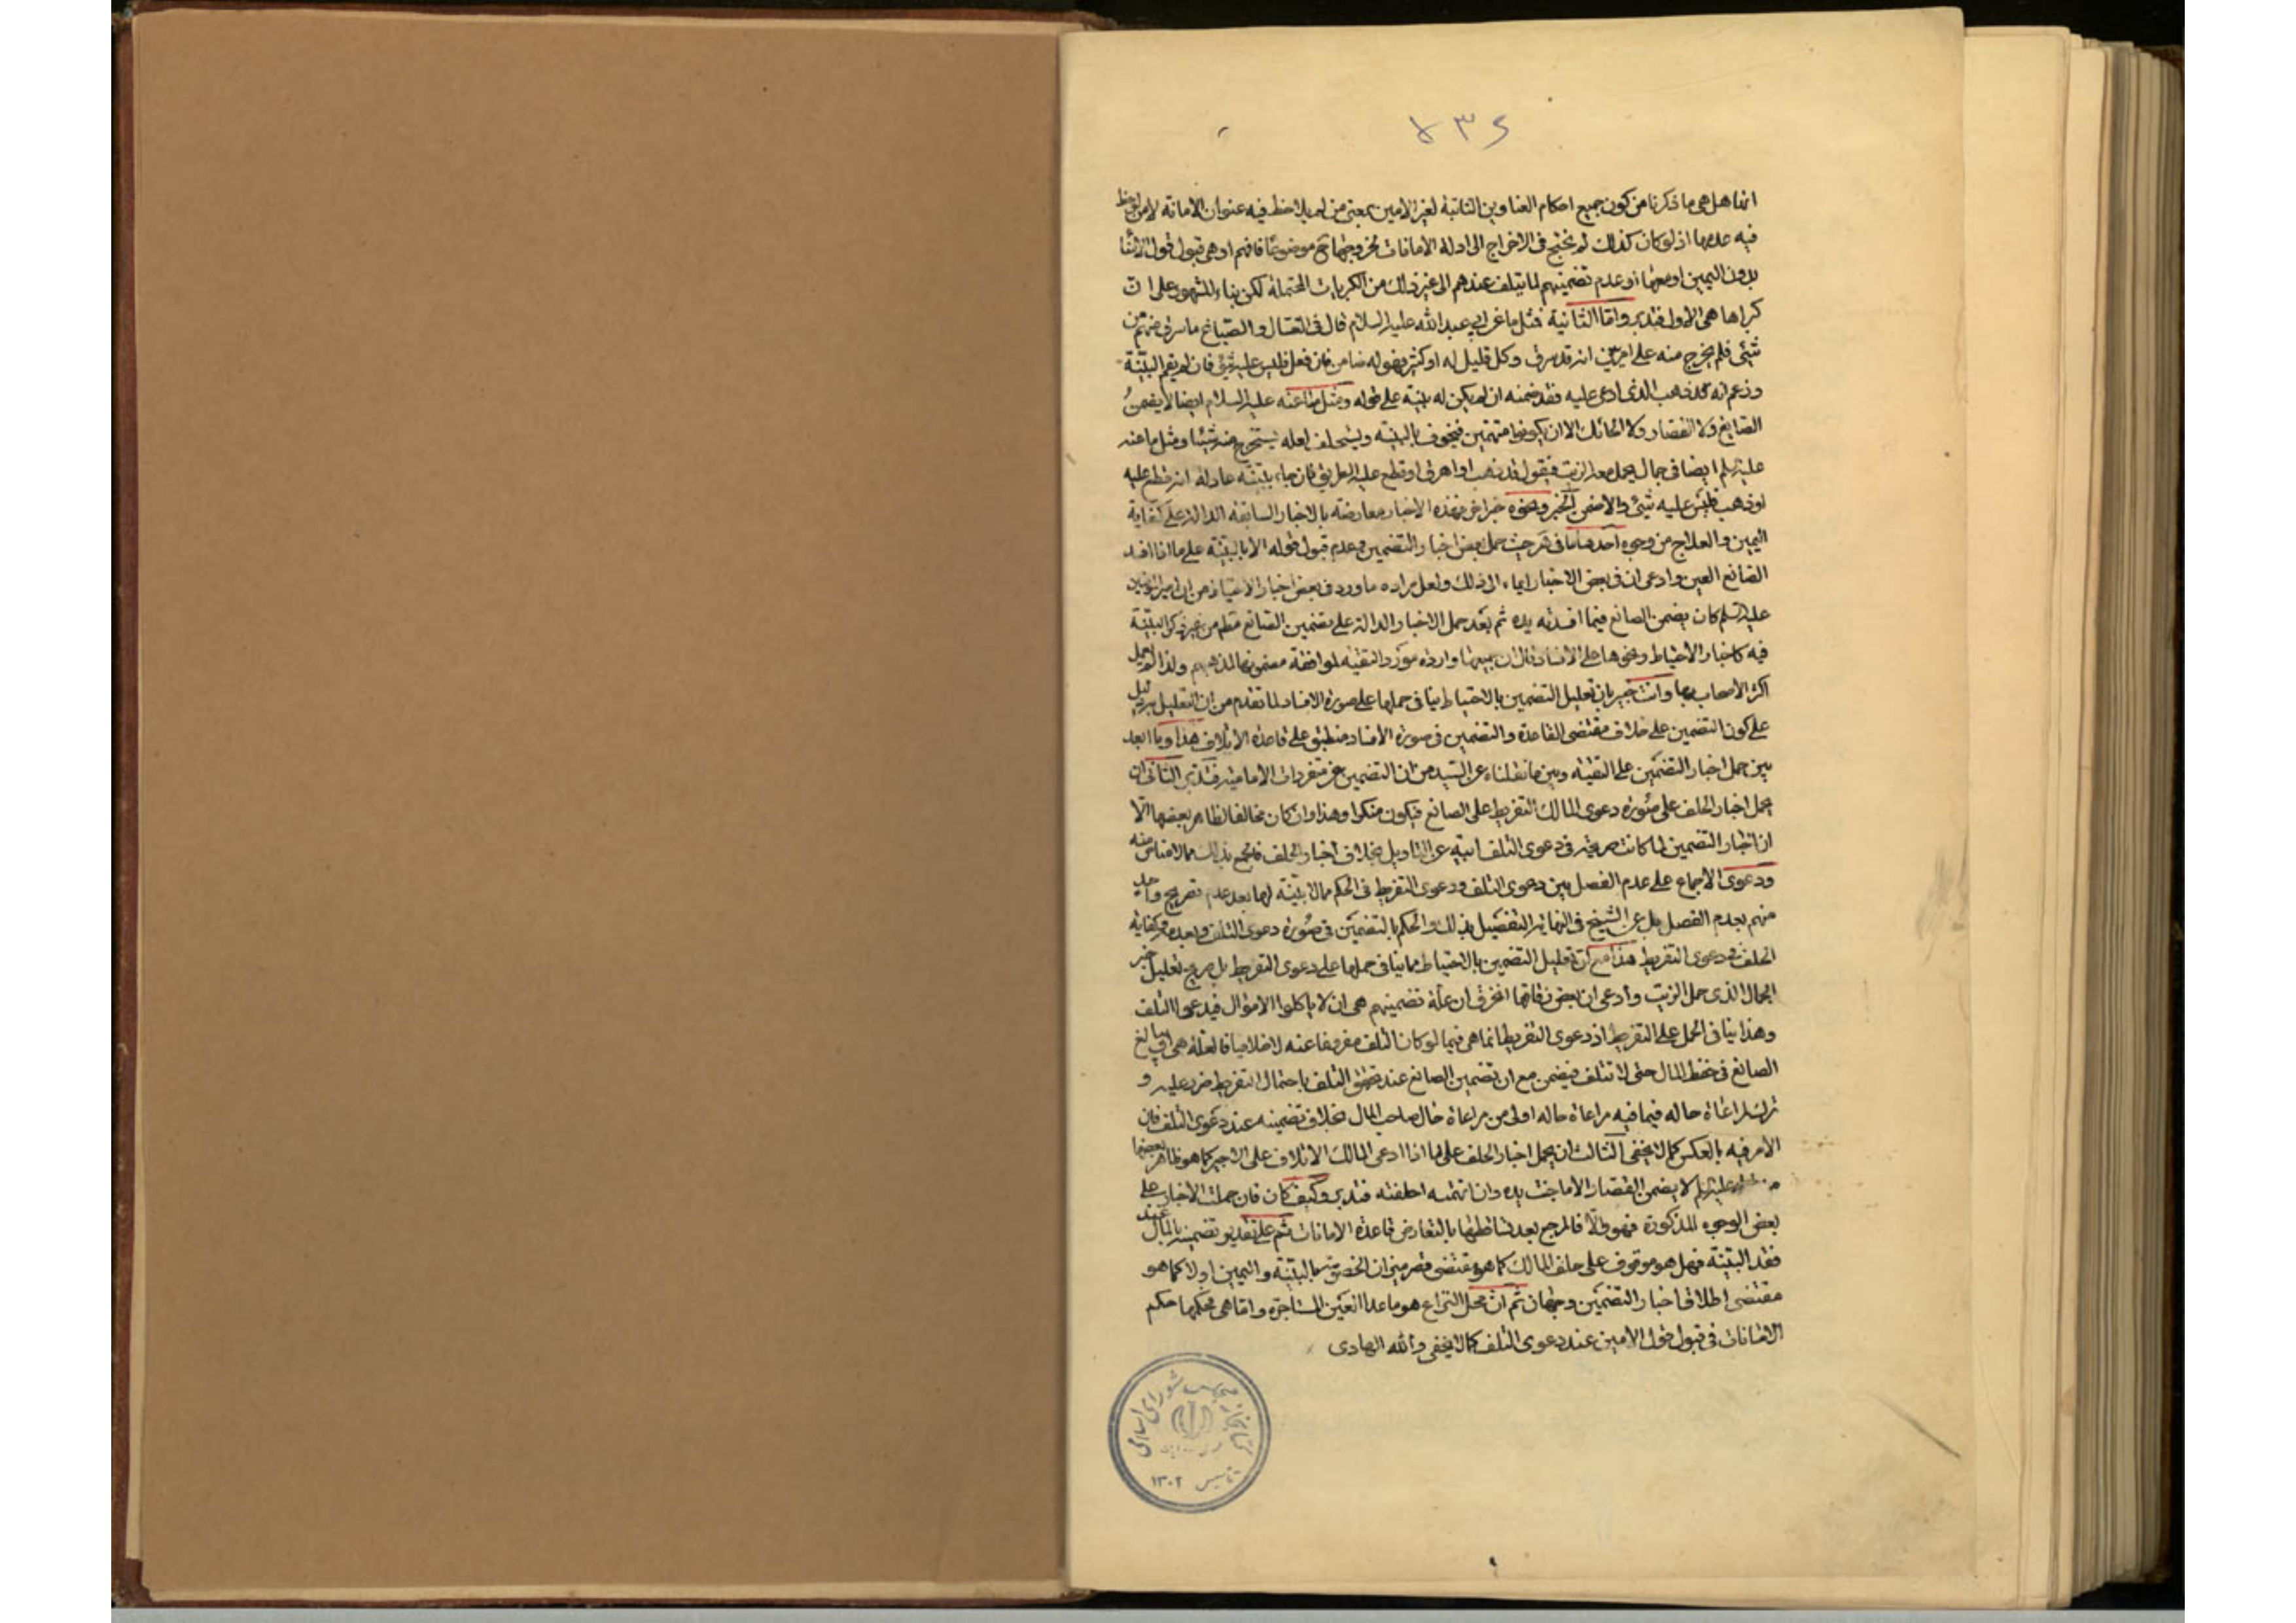 ۷۳۶
انها هل هی ما ذکرنا من کون جمیع احکام العناوین الثابتة لغیر الامین بمعنی من لم یلاحظ فیه عنوان الامانة لا من لوحظ
فیه عدمها اذ لو کان کذلک لم نحتج فی الاخراج الی ادلة الامانات لخروجها موضوعا فافهم او هی قبول قول
بدون الیمین او معها او عدم تضمینهم لما یتلف عندهم الی غیر ذلک من الکبریات المحتملة لکن بناء المشهور علی ان
کبراها هی الاول فتدبر واما الثانیة فمثل ما عن ابی عبدالله علیه السلام قال فی الغسال والصباغ ما سرق منهم من
شئ فلم یخرج منه علی امر بین انه قد سرق وکل قلیل له او کثیر فهو له ضامن فان فعل فلیس علیه شئ فان لم یقم البینة
وزعم انه قد ذهب الذی ادعی علیه فقد ضمنه ان لم یکن له بینة علی قوله ومثل ما عنه علیه السلام ایضا لا یضمن
الصایغ ولا القصار ولا الحائک الا ان یکونوا متهمین فیخوف بالبینة ویستحلف لعله یستخرج منه شیئا ومثل ما عنه
علیه السلم ایضا فی حمال یحمل معه الزیت فیقول قد ذهب او اهرق او قطع علیه الطریق فان جاء ببینة عادلة انه قطع علیه
او ذهب فلیس علیه شئ والا ضمن الخبر ونحوه خبر اخر وهذه الاخبار معارضة بالاخبار السابقة الدالة علی کفایة
الیمین والعلاج من وجوه احدها ما فی حیث حمل بعض اخبار التضمین وعدم قبول قوله الا بالبینة علی ما اذا افسد
الصانع العین وادعی ان فی بعض الاخبار ایماء الی ذلک ولعل مراده ما ورد فی بعض اخبار الاحتیاط من ان امیر المؤمنین
علیه السلم کان یضمن الصانع فیما افسدته یده ثم بعد حمل الاخبار الدالة علی تضمین الصانع مطلقا من غیر ذکر البینة
فیه کاخبار الاحتیاط ونحوها علی الافساد قال ان جمیعها واردة مورد التقیة لموافقة مضمونها لمذهبهم ولذا لم یعمل
اکثر الاصحاب بها وانت خبیر بان تعلیل التضمین بالاحتیاط ینافی حملها علی صورة الافساد لما تقدم من ان التعلیل یدل
علی کون التضمین علی خلاف مقتضی القاعدة والتضمین فی صورة الافساد منطبق علی قاعدة الاتلاف هذا وما ابعد
بین حمل اخبار التضمین علی التقیة وبین ما نقلناه عن السید من ان التضمین من متفردات الامامیة فتدبر الثانی ان
یحمل اخبار الحلف علی صورة دعوی المالک التفریط علی الصانع فیکون منکرا وهذا وان کان مخالفا لظاهر بعضها الا
ان اخبار التضمین لما کانت صریحة فی دعوی التلف ابیة عن التاویل بخلاف اخبار الحلف فالجمع بذلک مما لا مناص منه
ودعوی الاجماع علی عدم الفصل بین دعوی التلف ودعوی التفریط فی الحکم مما لا بینة لها بعد عدم تصریح واحد
منهم بعدم الفصل بل عن الشیخ فی النهایة التفصیل بذلک والحکم بالتضمین فی صورة دعوی التلف وبعدمه وکفایة
الحلف فی دعوی التفریط هذا مع ان تعلیل التضمین بالاحتیاط مما ینافی حملها علی دعوی التفریط بل صریح تعلیل خبر
الحمال الذی حمل الزیت وادعی ان بعض زقاقها انخرق ان علة تضمینهم هی ان لا یاکلوا الاموال فیدعوا التلف
وهذا ینافی الحمل علی التفریط اذ دعوی التفریط انما هی فیما لو کان التلف مفروغا عنه لا خلافیا فالعلة هی ان یبالغ
الصانع فی حفظ المال حتی لا تتلف فیضمن مع ان تضمین الصانع عند تحقق التلف باحتمال التفریط ضرر علیه و
ترک لمراعاة حاله فیما فیه مراعاة حاله اولی من مراعاة حال صاحب المال بخلاف تضمینه عند دعوی التلف فان
الامر فیه بالعکس کما لا یخفی الثالث ان یحمل اخبار الحلف علی ما اذا ادعی المالک الاتلاف علی الاجیر کما هو ظاهر بعضها
علیه السلم لا یضمن القصار الا ما جنت یده وان اتهمته احلفته فتدبر وکیف کان فان حملت الاخبار علی
بعض الوجوه المذکورة فهو والا فالمرجع بعد تساقطها بالتعارض قاعدة الامانات ثم علی تقدیر تضمینه بالمال عند
فقد البینة فهل هو موقوف علی حلف المالک کما هو مقتضی حصر میزان الخصومة بالبینة والیمین او لا کما هو
مقتضی اطلاق اخبار التضمین وجهان ثم ان محل النزاع هو ما عدا العین المستاجرة واما هی فحکمها حکم
الامانات فی قبول قول الامین عند دعوی التلف کما لا یخفی والله الهادی
کتابخانه مجلس شورای اسلامی
تاسیس ۱۳۰۲